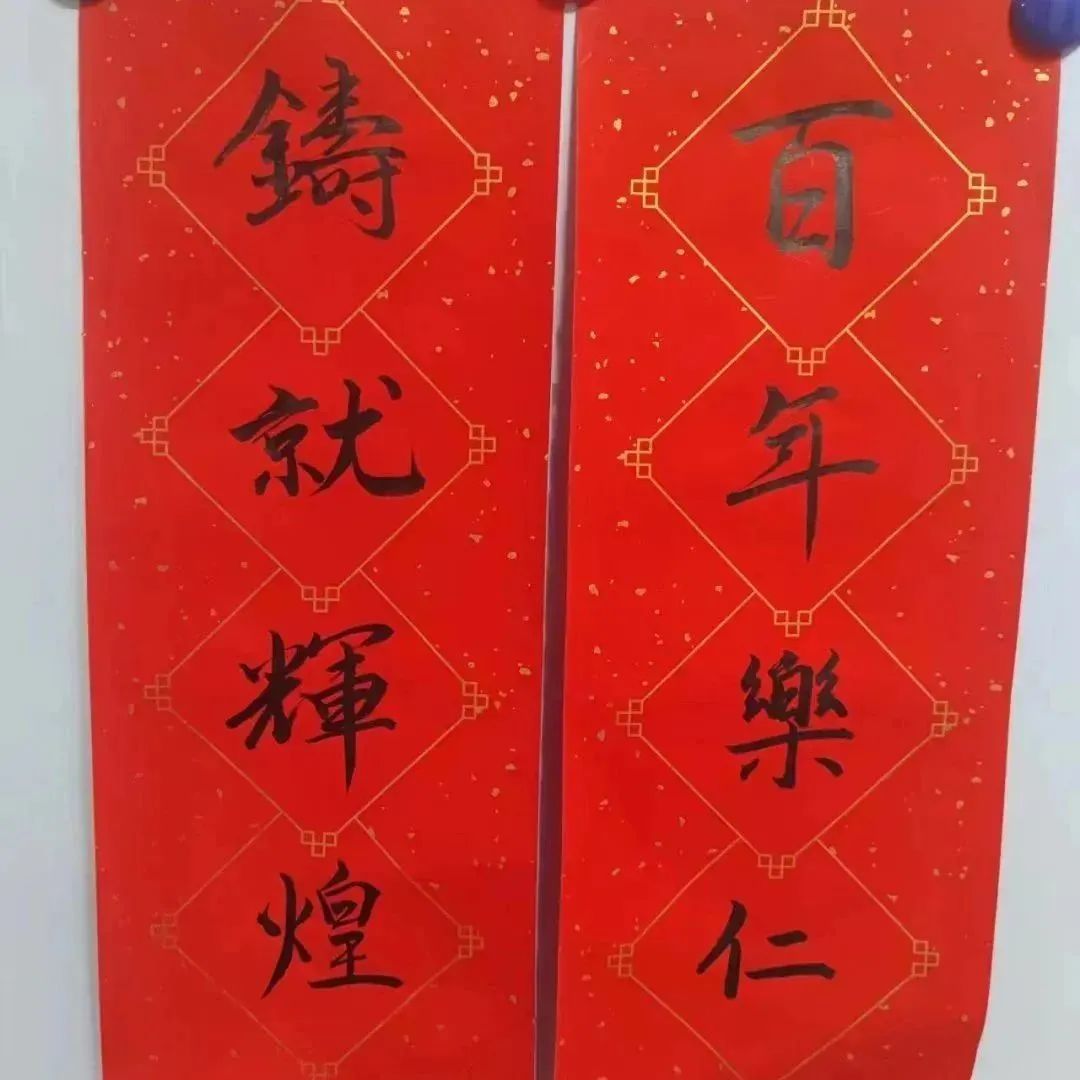 百年樂仁
鑄就輝煌